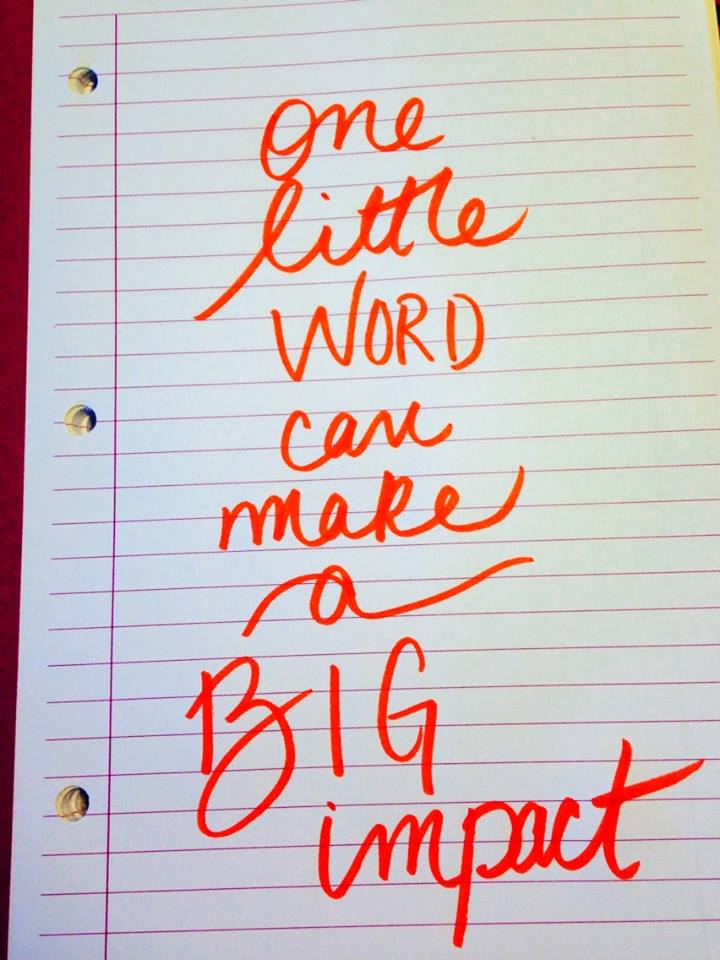 one
little
WORD
can
make
a
BIG
impact